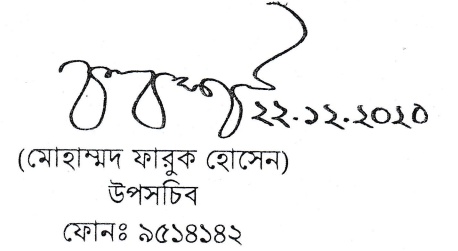 ২২.১২.২০২০
(মোহাম্মদ ফারুক হোসেন)
উপসচিব
ফোনঃ ৯৫১৪১৪২